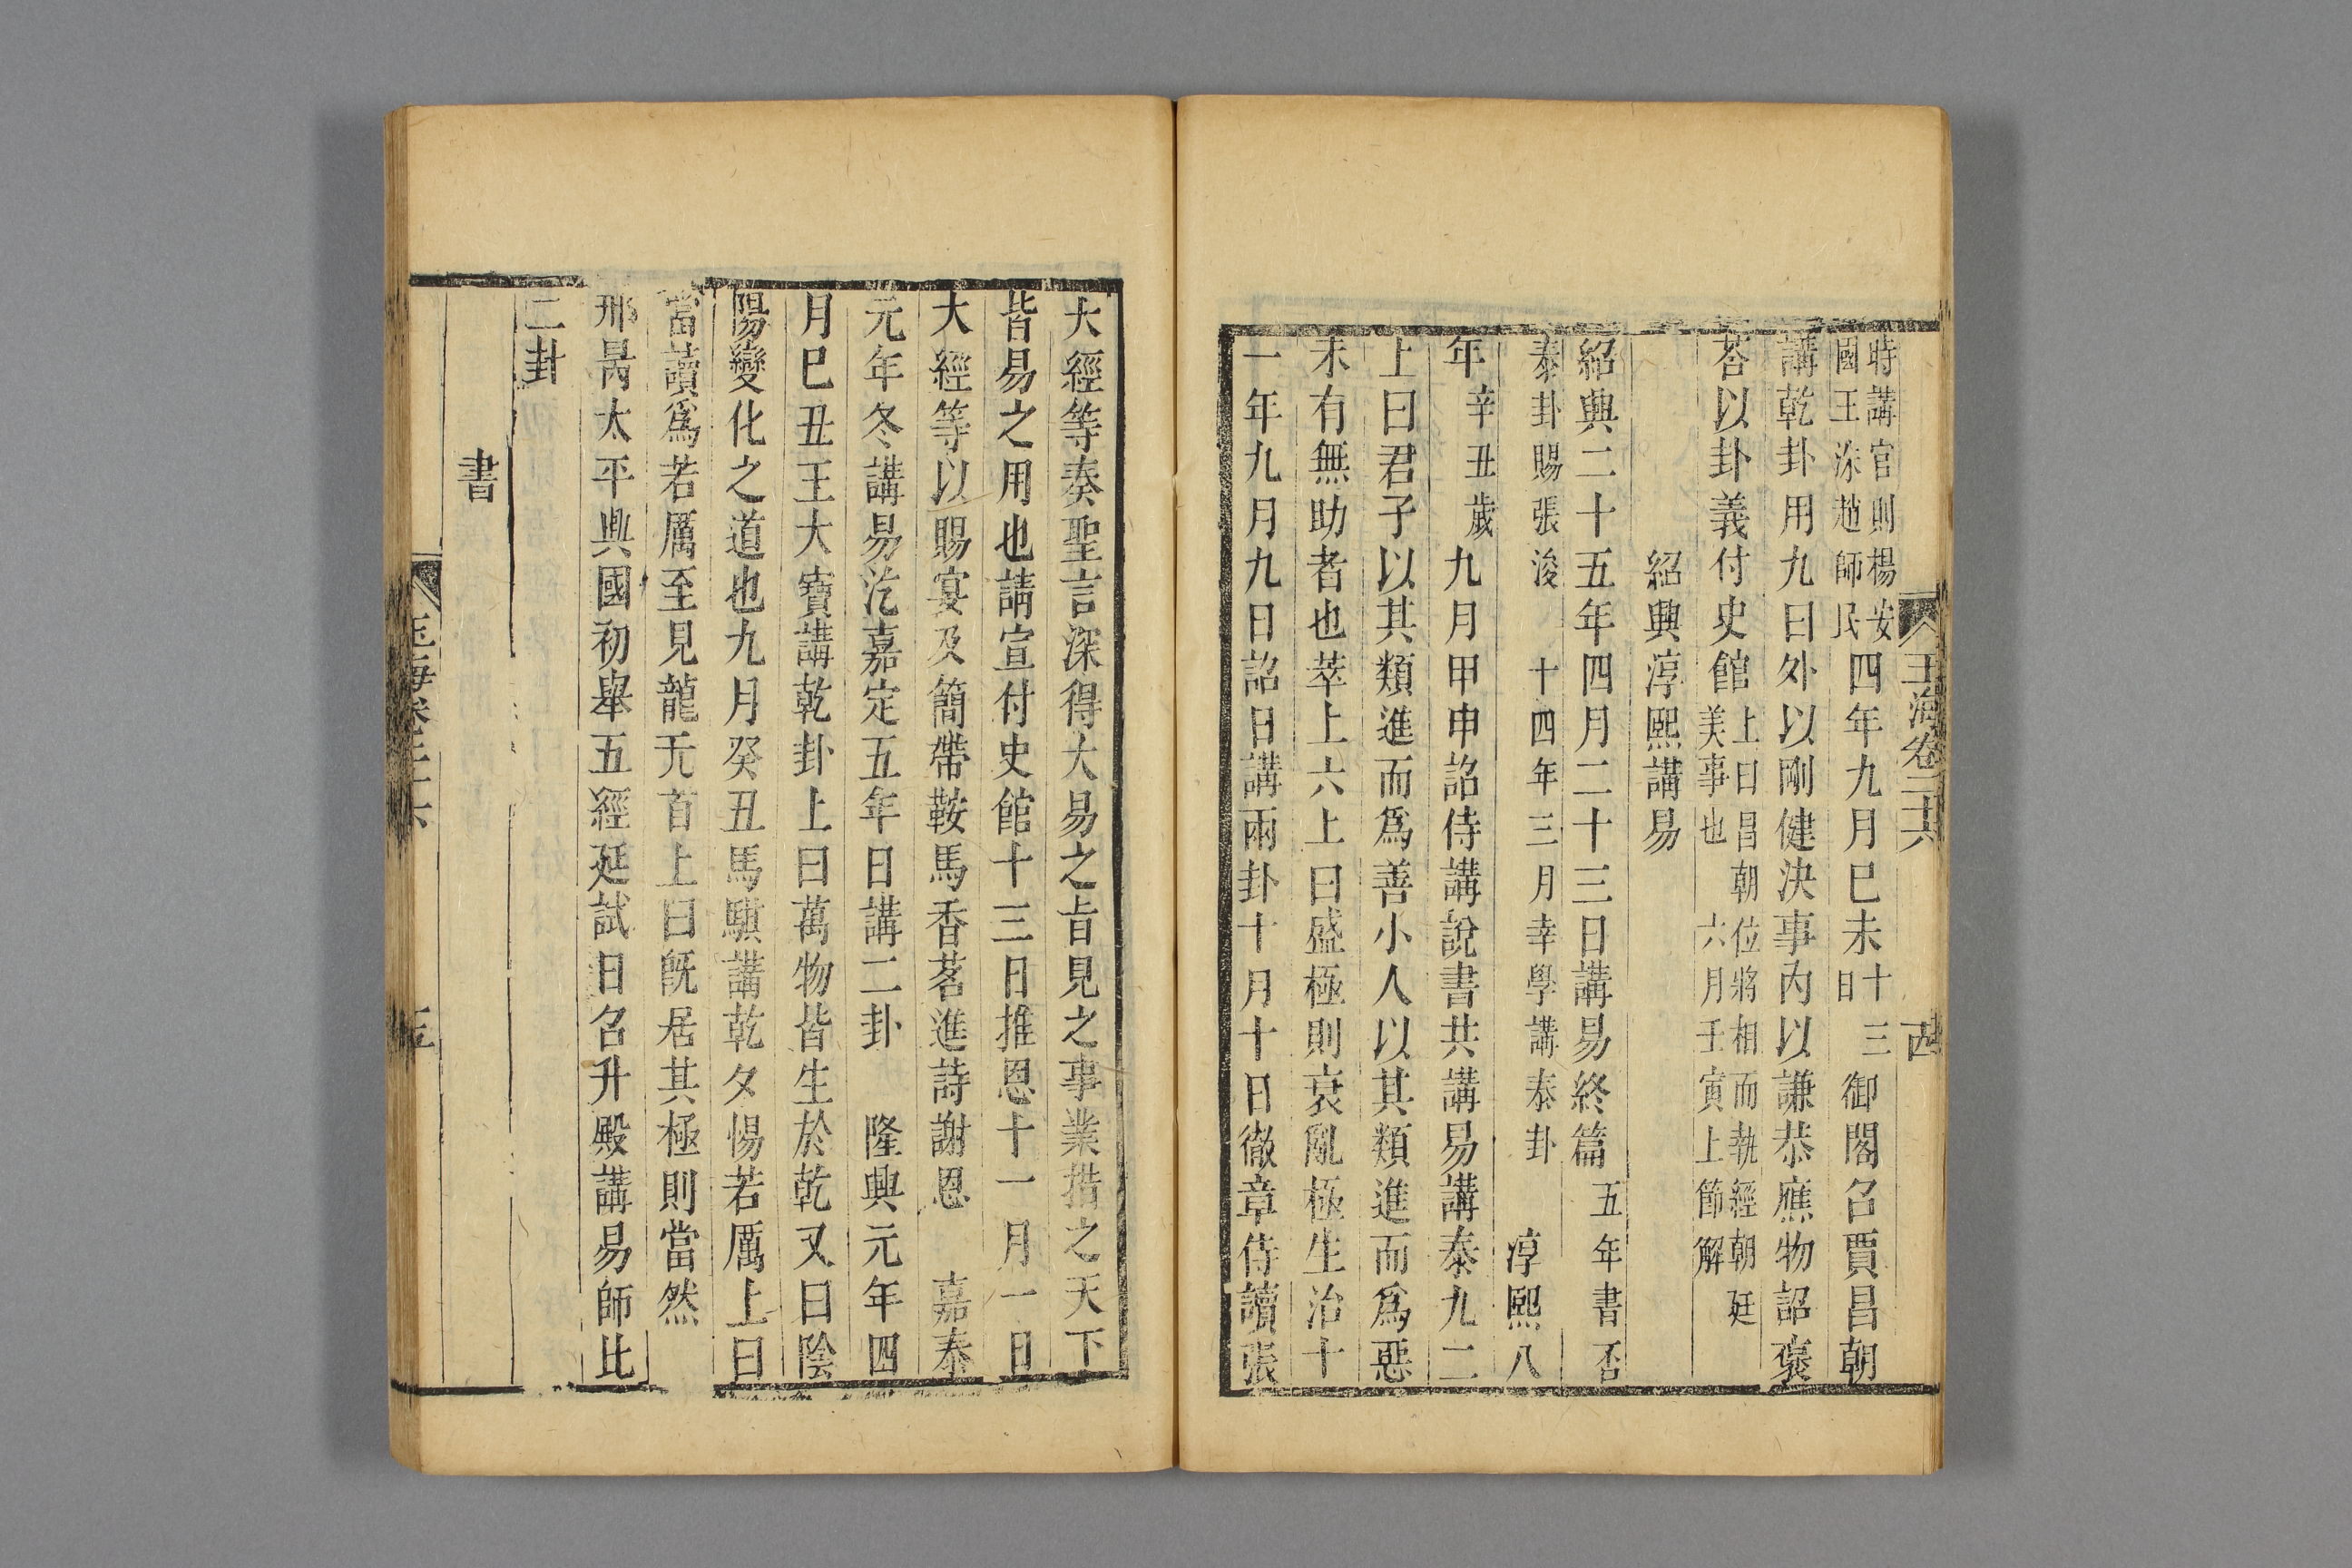 玉海卷三十六
時講官則楊安
國王洙趙師民
四年九月巳未
十三
日
御閣召賈昌朝
講乾卦用九曰外以剛健決事內以謙恭應物詔褒
荅以卦義付史館
上曰昌朝位將相而執經朝廷
美事也 六月壬寅上節解
紹興淳熙講易
紹興二十五年四月二十三日講易終篇
五年書否
泰卦賜張浚 十四年三月幸學講泰卦
淳熙八
年
辛丑歲
九月甲申詔侍講說書共講易講泰九二
上曰君子以其類進而爲善小人以其類進而爲惡
未有無助者也萃上六上曰盛極則衰亂極生治十
一年九月九日詔日講兩卦十月十日徹章侍讀張
大經等奏聖言深得大易之旨見之事業措之天下
皆易之用也請宣付史館十三日推恩十一月一日
大經等以賜宴及簡帶鞍馬香茗進詩謝恩 嘉泰
元年冬講易汔嘉定五年日講二卦 隆興元年四
月巳丑王大寶講乾卦上曰萬物皆生於乾又曰陰
陽變化之道也九月癸丑馬騏講乾夕惕若厲上曰
當讀爲若厲至見龍无首上曰旣居其極則當然
邢昺太平興國初舉五經廷試日召升殿講易師比
二卦
書
玉海卷三十六